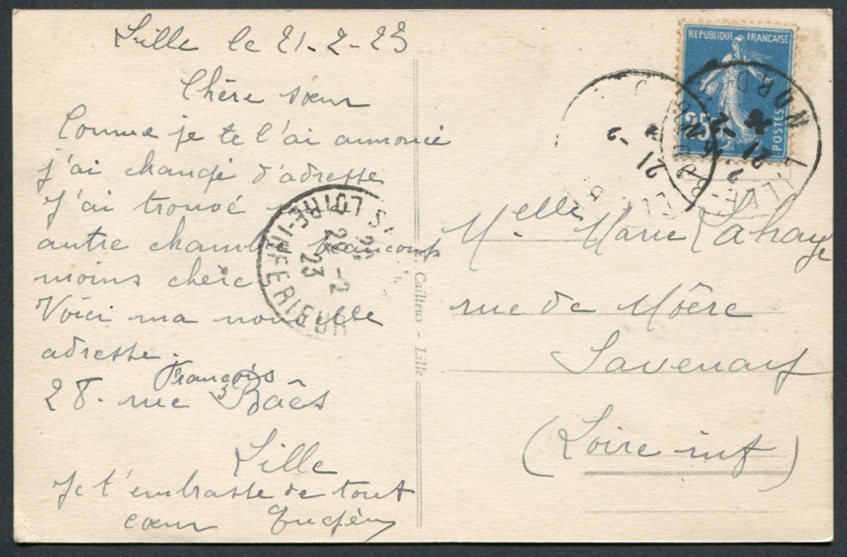 Lille le 21-2-23
Chère sœur
Comme je te l'ai annoncé
j'ai changé d'adresse
J'ai trouvé
autre chambre beaucoup
moins chère
Voici ma nouvelle
adresse.
François
28. rue Baës
Lille
Je t'embrasse de tout
cœur Eugène
Cailleux - Lille
REPUBLIQUE FRANÇAISE
25c
POSTES
LOIRE-INFERIEURE
23 -2
23
21 -2
LILLE
NORD
Melle Marie Lahaye
rue de Moëre
Savenay
(Loire inf)